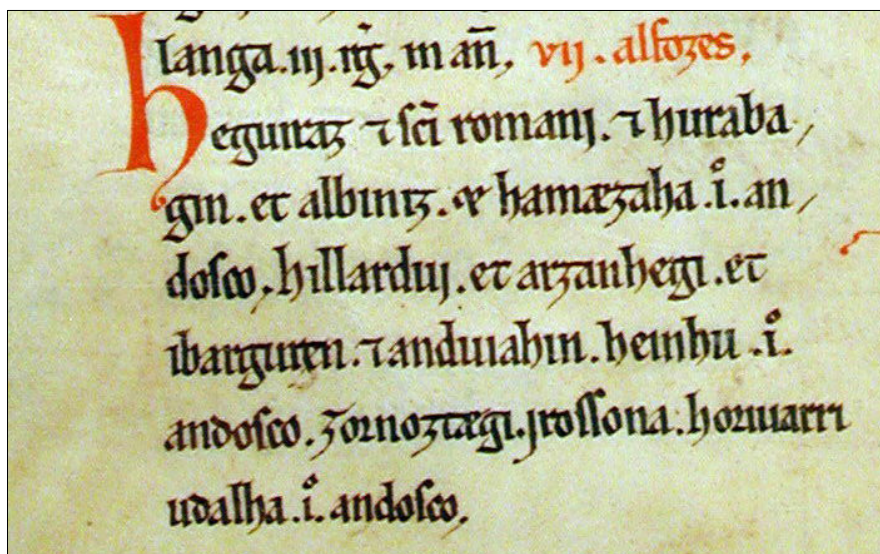 langa.iij.rg̃, in añ, vij. alfozes,
heguraz ⁊ sc̃i romani. ⁊ huraba,
gin. et albiniz. & hamæzaha .i̊. an,
dosco, hillardui. et arzanhegi. et
ibarguren. ⁊ anduiahin. heinhu .i̊.
andosco. zornoztægi. jrossona. horiuarri
udalha .i̊. andosco,